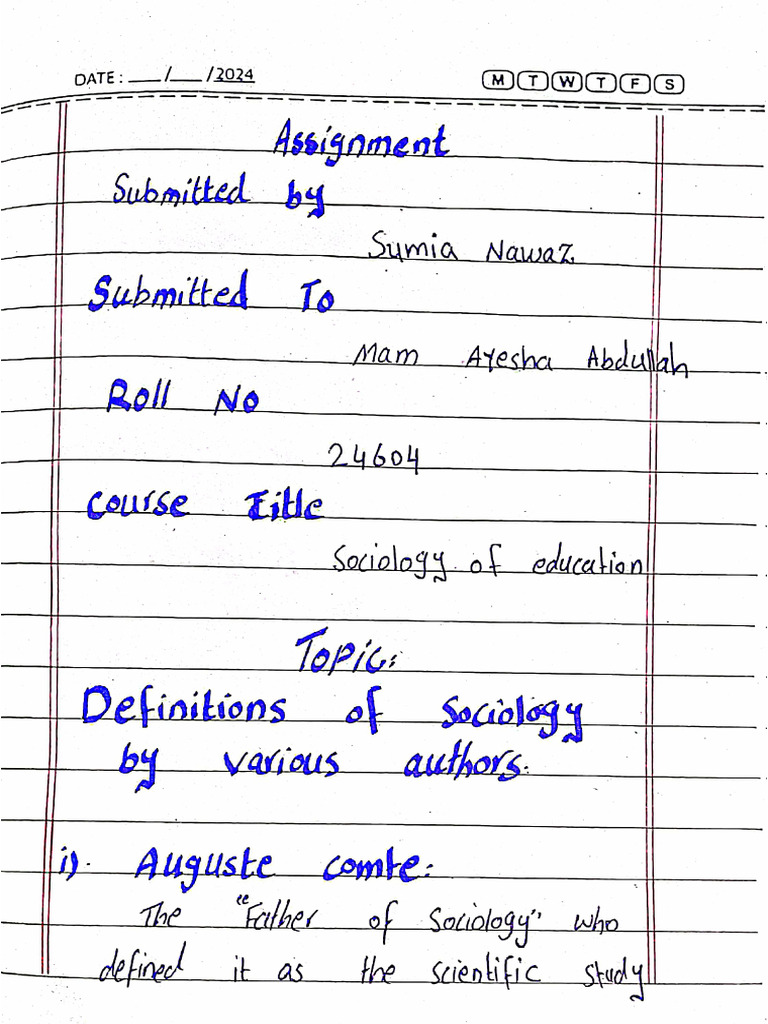 DATE: ___/___/2024 M T W T F S
Assignment
Submitted by
Sumia Nawaz
Submitted To
Mam Ayesha Abdullah
Roll No
24604
Course Title
Sociology of education
Topic:
Definitions of Sociology
by various authors.
i). Auguste comte:
The "Father of Sociology" who
defined it as the scientific study